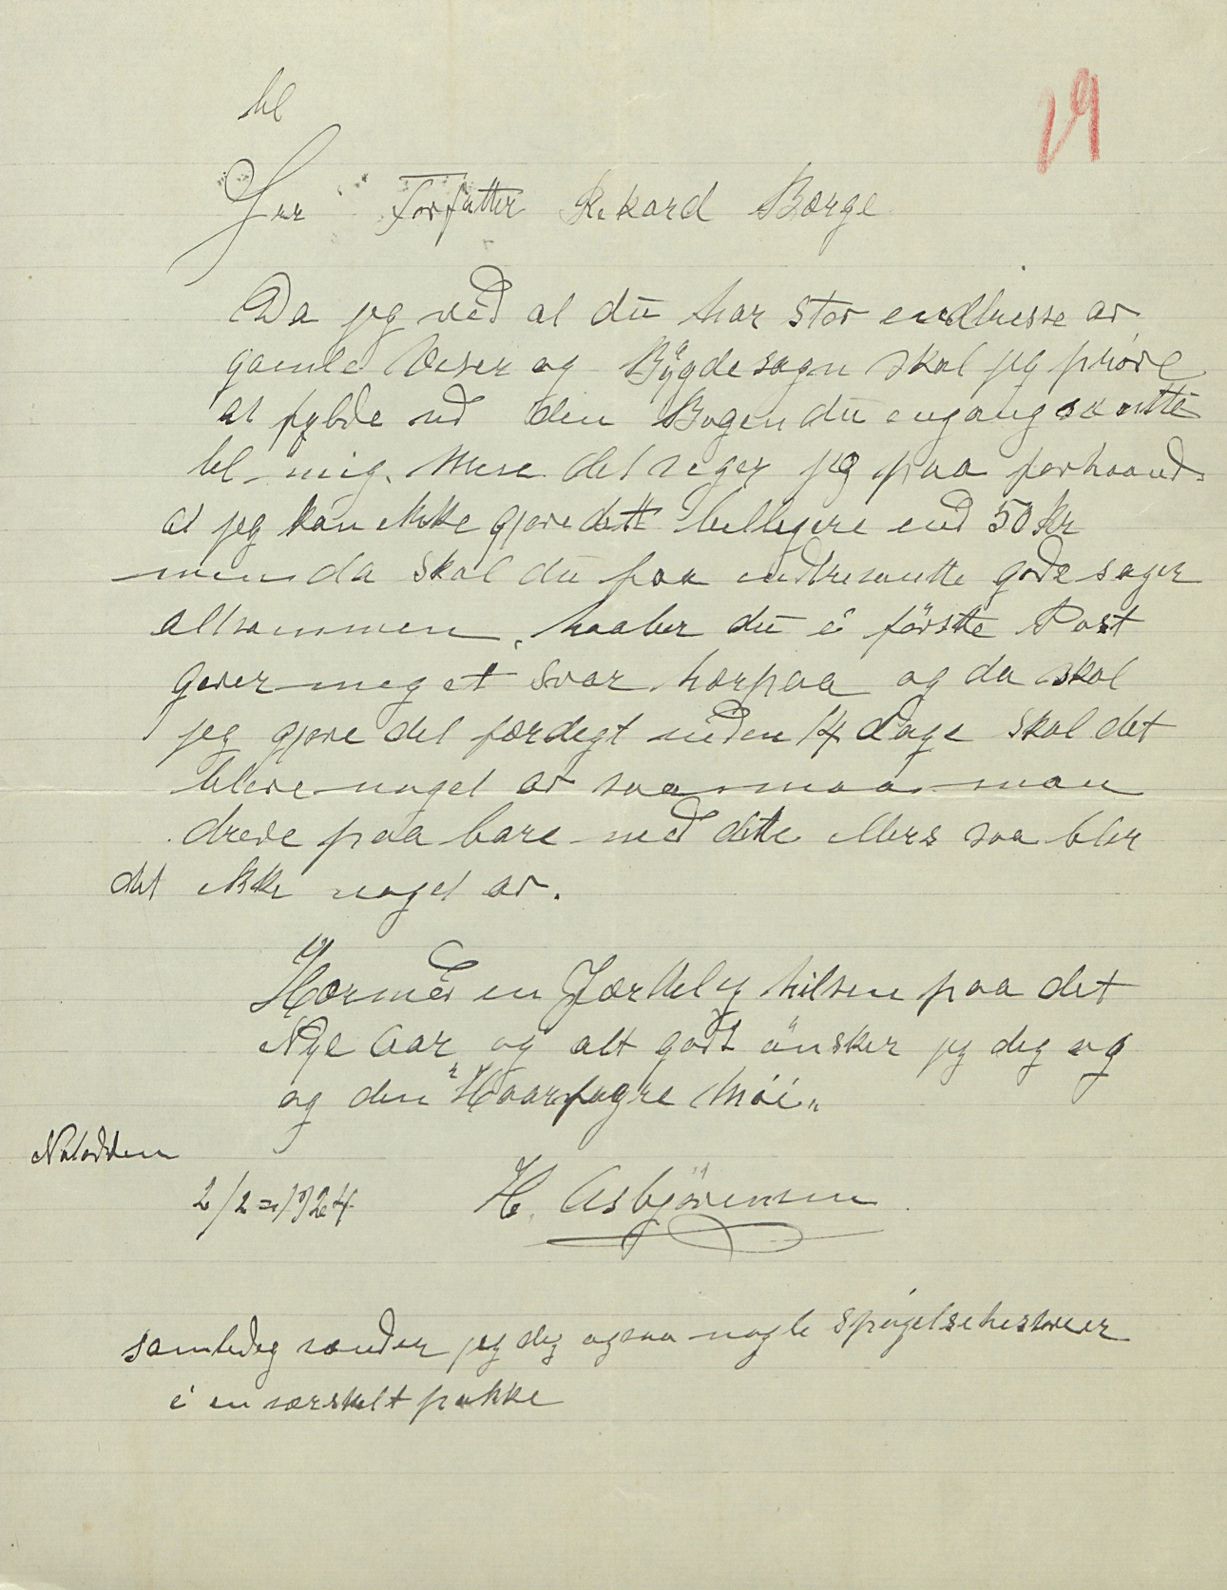 til
19
Herr Forfatter Rikard Berge
Da jeg ved at du har stor endtresse av
gamle Viser og Bygdesagn skal jeg prøve
at fylde ud den Bogen du engang sentte
til mig. Mere det siger jeg paa forhaand-
at jeg kan ikke gjøre dette billigere end 50 Kr
men da skal du faa indtresantte gode sager
altsammen, haaber du i første Post
giver mig et svar hærpaa og da skal
jeg gjøre det færdigt inden 14 dage skal det
blive noget av saa maa man
drive paa bare med dette ellers saa blir
det ikke noget av.
Hærmed en Hjærtelig hilsen paa det
Nye Aar og alt godt ønsker jeg dig og
og den "Haarfagre Møi„
Notodden
2/2=1924
H. Asbjørnsen
samtidig sender jeg dig ogsaa nogle Spøgelsehistorier
i en særskilt pakke